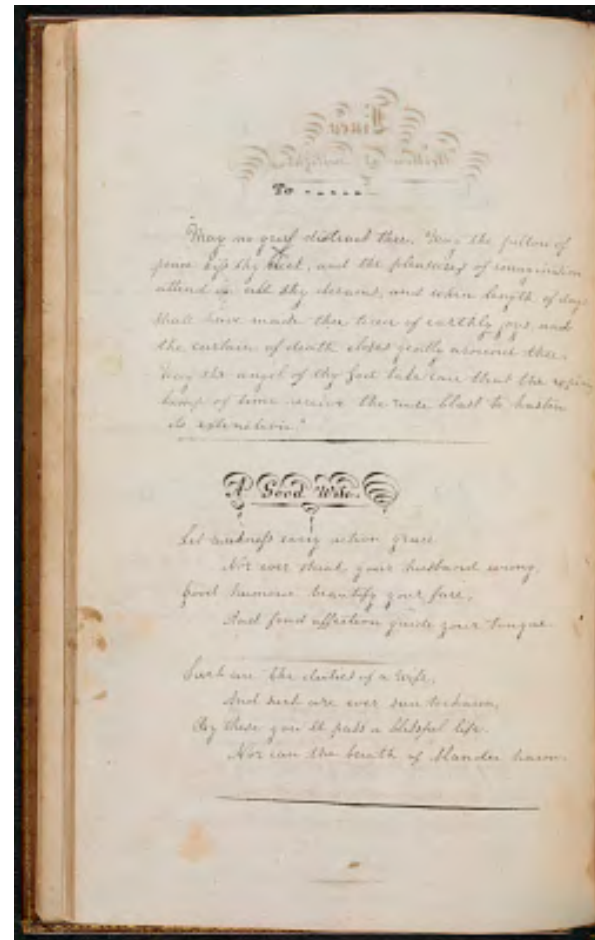 To - - - - -
"May no grief distract thee. May the pillow of
peace kiss thy cheek, and the pleasures of imagination
attend in all thy dreams, and when length of days
shall have made thee tired of earthly joys, and
the curtain of death closes gently around thee.
May the angel of thy God take care that the expiring
lamp of time receive the rude blast to hasten
its extinction."
A Good Wife.
Let meekness every action grace
Nor ever think your husband wrong,
Good humour beautify your face,
And fond affection guide your tongue.
Such are the duties of a wife,
And such are ever sure to charm,
By these you'll pass a blissful life.
Nor can the breath of slander harm.